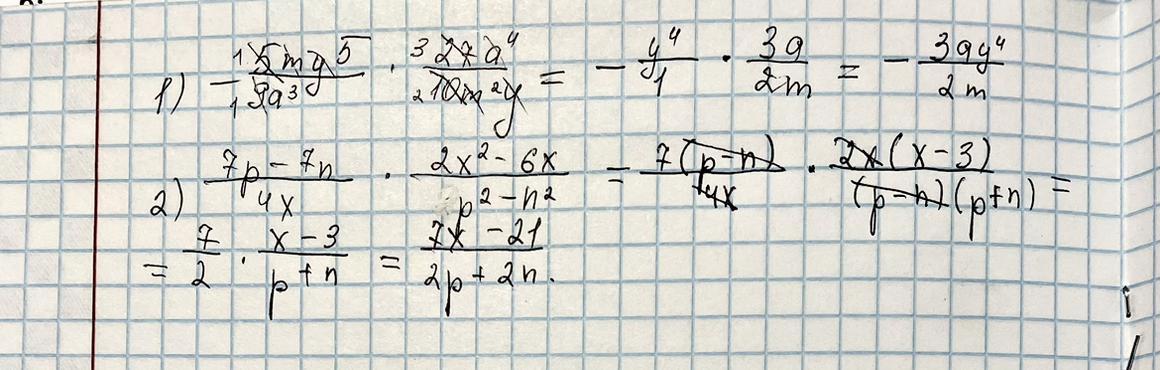 1) - 5my⁵/9a³ · 27a⁴/10m²y = - y⁴/1 · 3a/2m = - 3ay⁴/2m
2) 7p-7n/4x · 2x²-6x/p²-n² = 7(p-n)/4x · 2x(x-3)/(p-n)(p+n) =
= 7/2 · x-3/p+n = 7x-21/2p+2n.